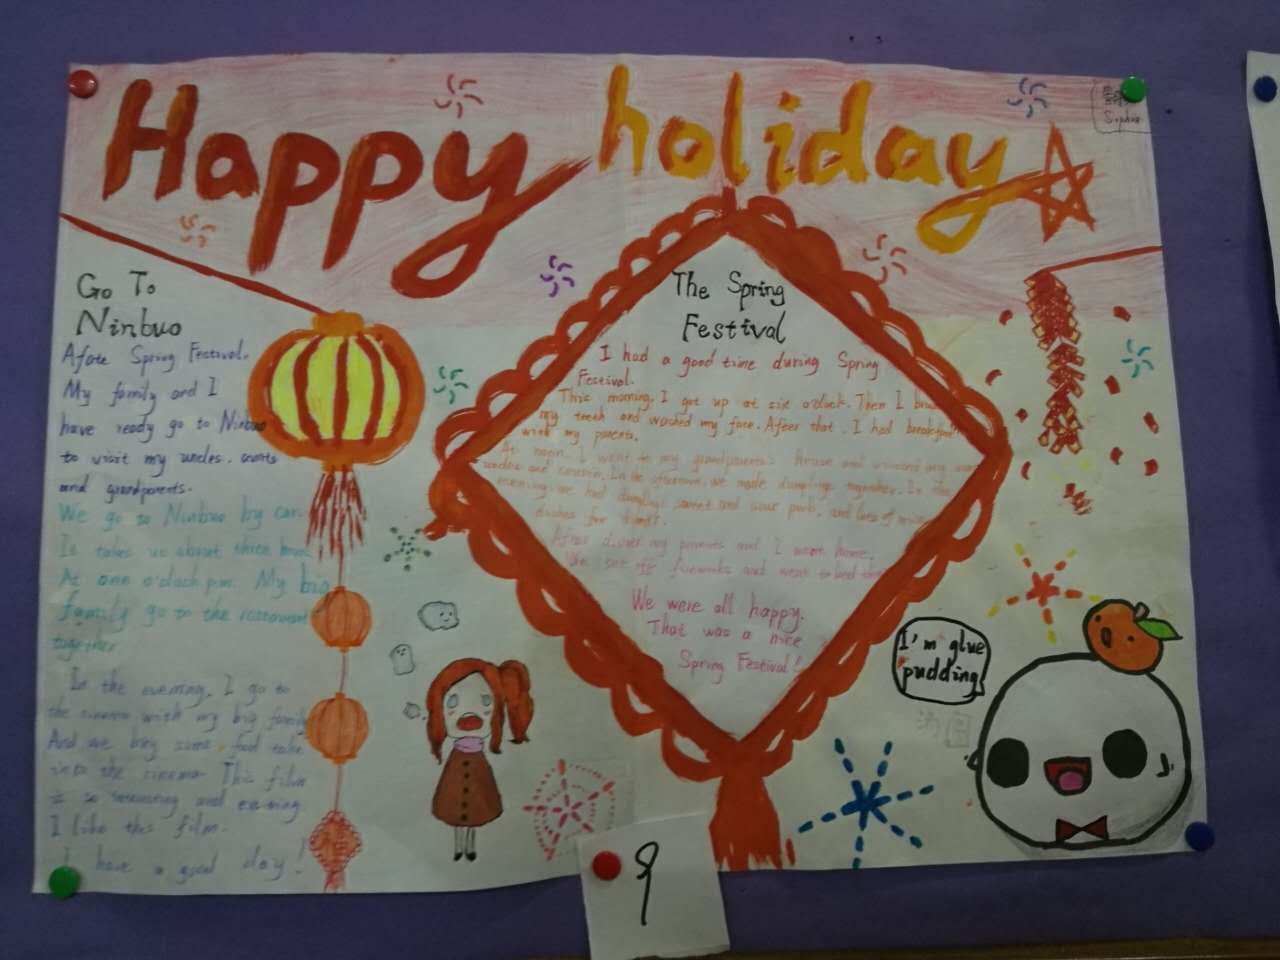 Happy holiday
Sophia
Go To
Ninbuo
Afore Spring Festival.
My family and I
have ready go to Ninbuo
to visit my uncles. aunts
and grandparents.
We go to Ninbuo by car.
It takes us about three
At one o'clock p.m. My big
family go to the restaurant
together
In the evening, I go to
the cinema with my big family
And we buy some food take
into the cinema. This film
is so interesting and
I like this film.
I have a good day!
The Spring
Festival
I had a good time during Spring
Festival.
This morning, I got up at six o'clock. Then I
my teeth and washed my face. Afeer that, I had breakfast
with my parents.
At noon, I went to my grandparents' house and
and cousin. In the afternoon, we made dumplings together. In the
evening, we had sweet and sour pork, and lots of
dishes for dinner.
After dinner, my parents and I went home.
We set off fireworks and went to bed
We were all happy.
That was a nice
Spring Festival!
I'm glue
pudding
汤圆
9